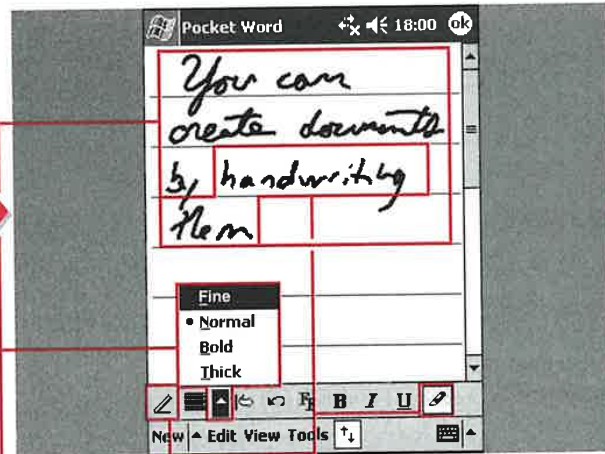 Pocket Word 18:00 ok
You can
create documents
by handwriting
them
Fine
• Normal
Bold
Thick
B I U
New Edit View Tools